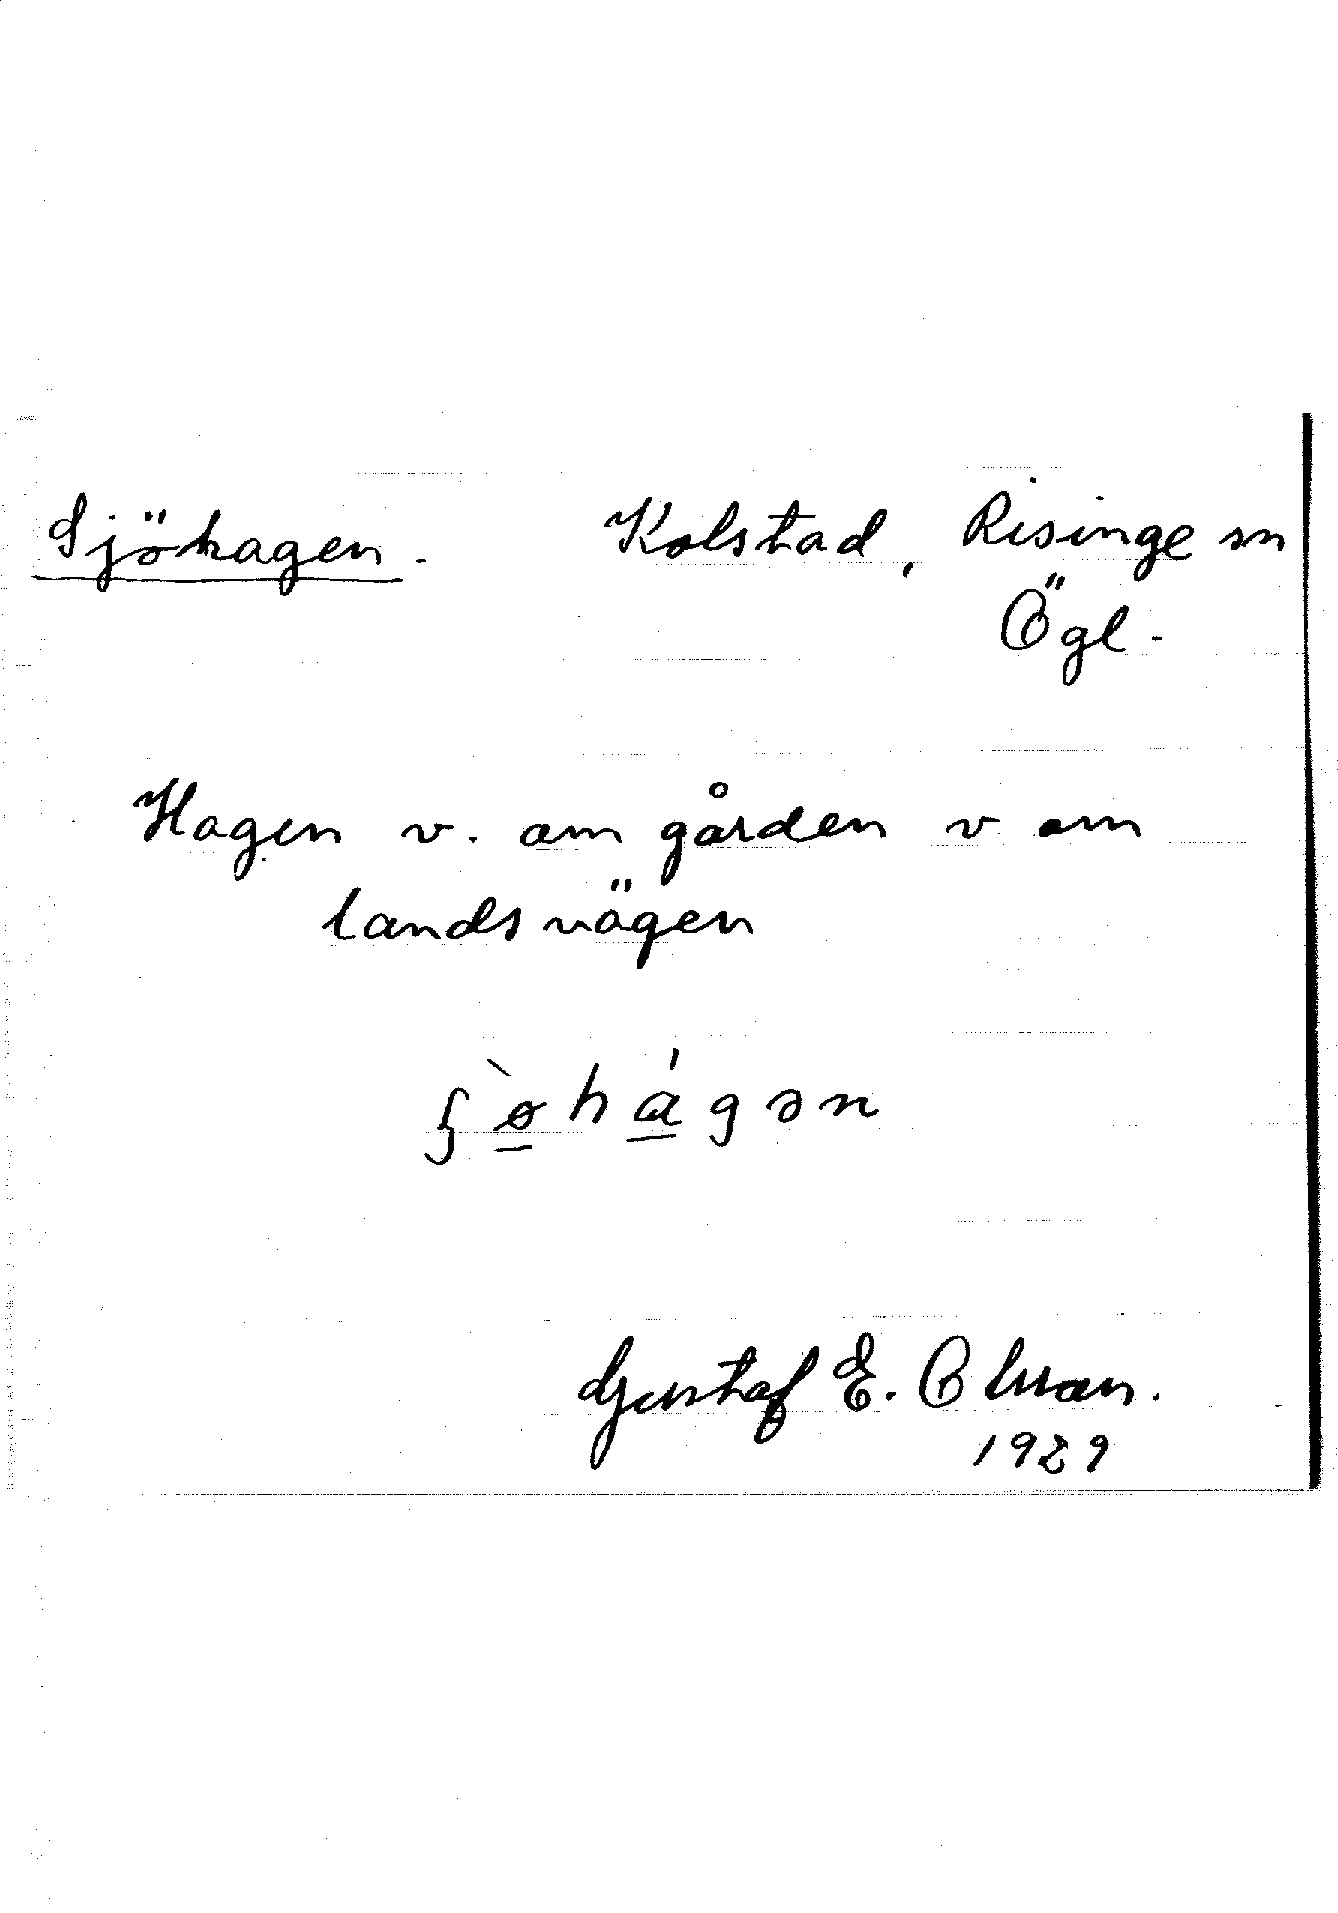 Sjöhagen. Kolstad, Risinge sn
Ögl.
Hagen v. om gården v om
landsvägen
ʂø̀hágən
Gustaf E.
1929